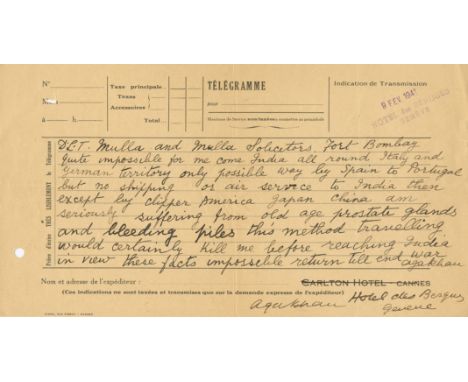 N°
Mots
à h.
Taxe principale
Taxes
Accessoires
Total
TÉLÉGRAMME
pour
Indication de Transmission
9 FEV. 194
HOTEL des BERGUES
GENÈVE
Prière d'écrire TRÈS LISIBLEMENT le Télégramme
DLT. Mulla and Mulla Solicitors, Fort Bombay
Quite impossible for me come India all round Italy and
German territory only possible way by Spain to Portugal
but no shipping or air service to India then
except by clipper America Japan China am
seriously suffering from old age prostate glands
and bleeding piles this method travelling
would certainly kill me before reaching India
in view these facts impossible return till end war
agakhan
Nom et adresse de l'expéditeur :
CARLTON HOTEL - CANNES
(Ces indications ne sont taxées et transmises que sur la demande expresse de l'expéditeur)
Agakhan
Hotel des Bergues
Geneve